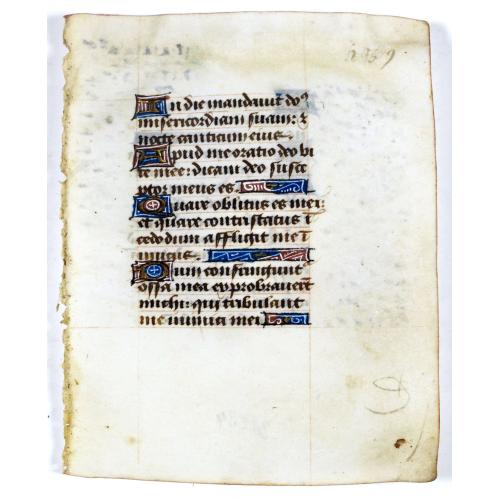 In die mandavit dn̄s
misericordiam suam: &
nocte canticum eius.
Apud me oratio deo vi
te mee: dicam deo susce
ptor meus es
Quare oblitus es mei:
et quare contristatus ī
cedo dum affligit me ī
imicus.
Dum confringunt
ossa mea exprobraverūt
michi: qui tribulant
me inimici mei.